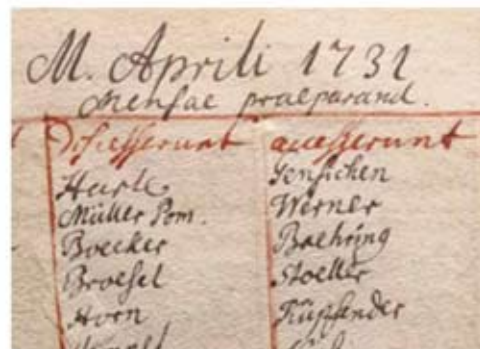 M. Aprili 1731
Mensae praeparand.
Discesserunt accesserunt
Hartk Jensichen
Müller Pom. Werner
Boecker Boehring
Broesel Stoeller
Horn